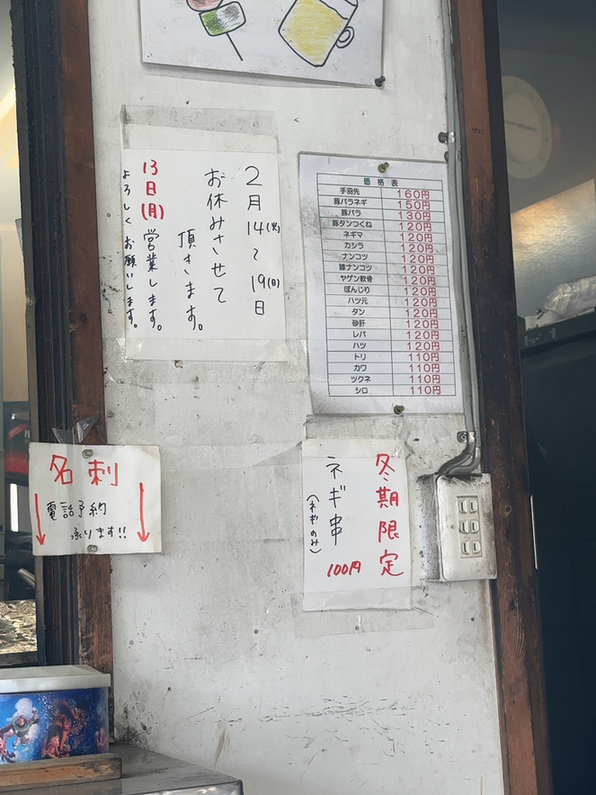 2月14(火)〜19(日)日
お休みさせて
頂きます。
13日(月)営業します。
よろしくお願いします。
価格表
手羽先 160円
豚バラネギ 150円
豚バラ 130円
豚タンつくね 120円
ネギマ 120円
カシラ 120円
ナンコツ 120円
膝ナンコツ 120円
ヤゲン軟骨 120円
ぼんじり 120円
ハツ元 120円
タン 120円
砂肝 120円
レバ 120円
ハツ 120円
トリ 110円
カワ 110円
ツクネ 110円
シロ 110円
名刺
電話予約
承ります!!
冬期限定
ネギ串
(ネギのみ)
100円